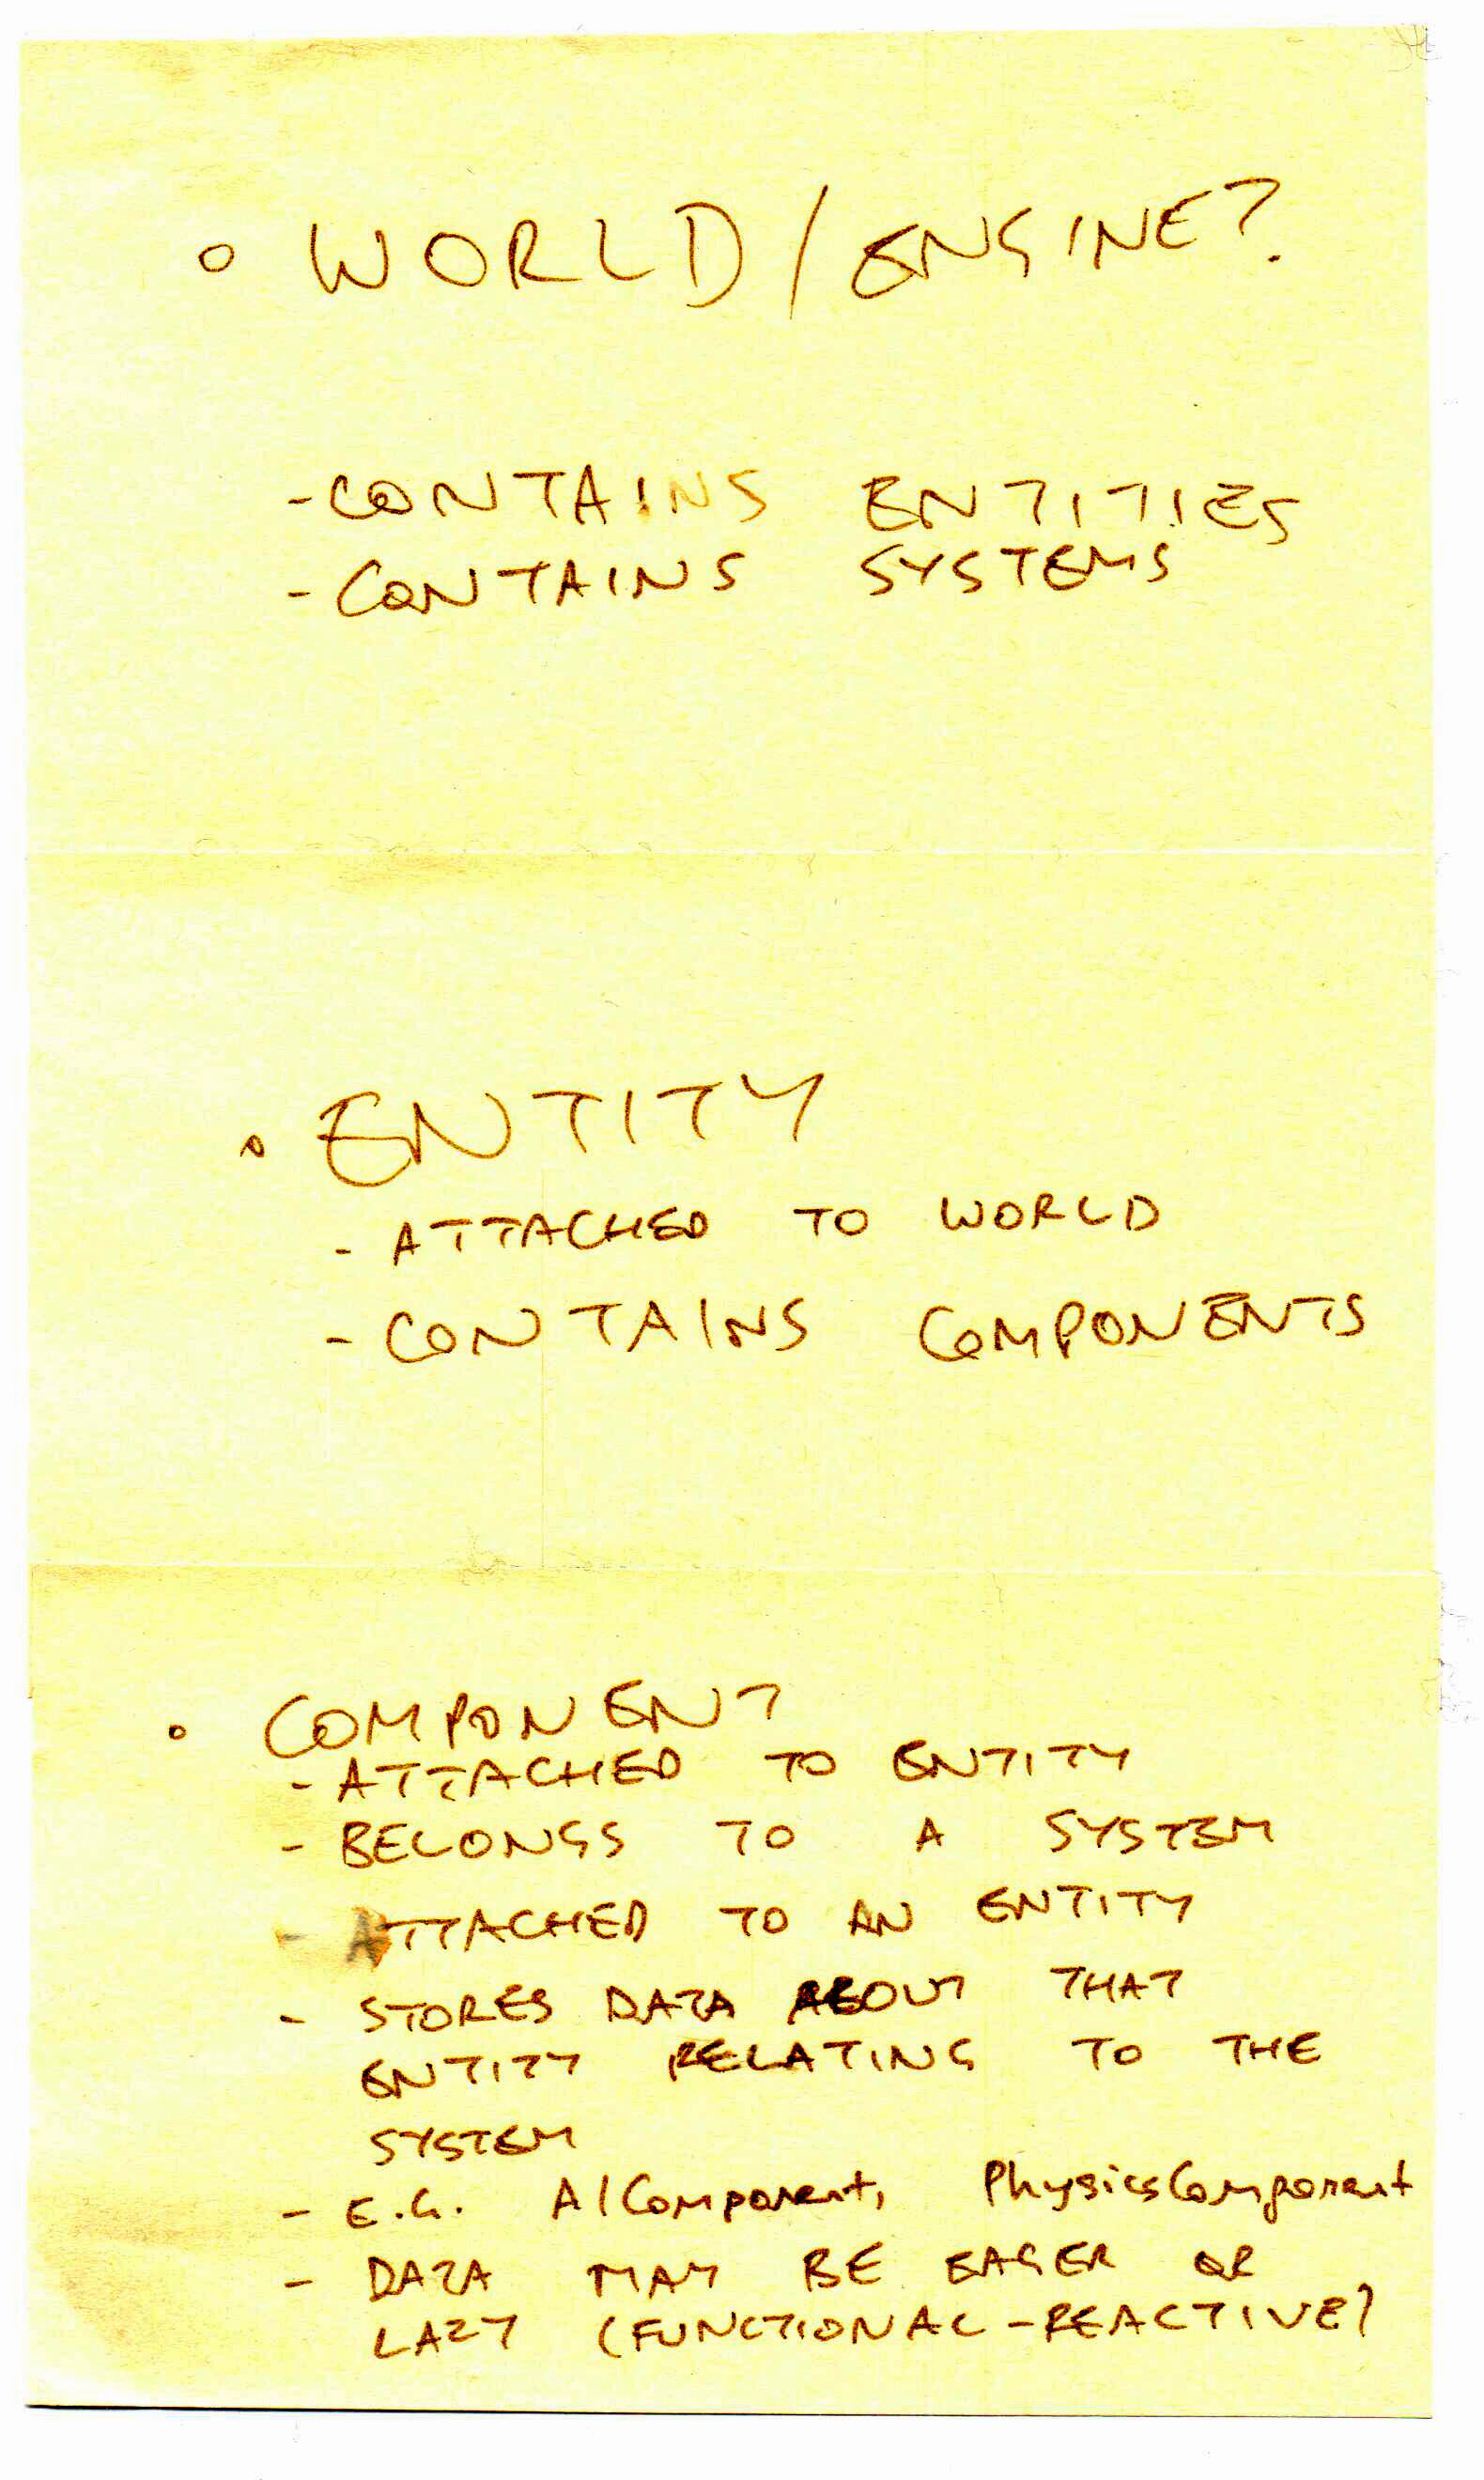 ° WORLD / ENGINE?
- CONTAINS ENTITIES
- CONTAINS SYSTEMS
° ENTITY
- ATTACHED TO WORLD
- CONTAINS COMPONENTS
° COMPONENT
- ATTACHED TO ENTITY
- BELONGS TO A SYSTEM
- ATTACHED TO AN ENTITY
- STORES DATA ABOUT THAT
ENTITY RELATING TO THE
SYSTEM
- E.G. AIComponent, PhysicsComponent
- DATA MAY BE EAGER OR
LAZY (FUNCTIONAL-REACTIVE)